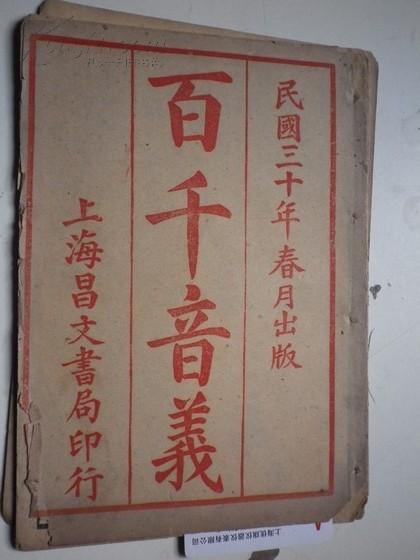 民國三十年春月出版
百千音義
上海昌文書局印行